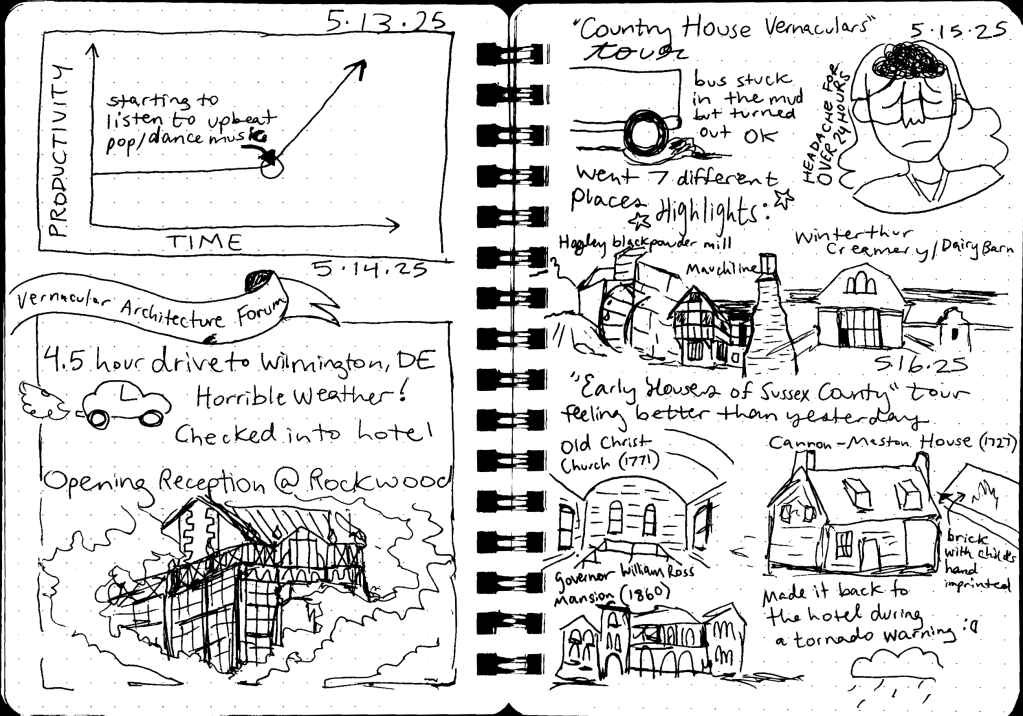 5·13·25
PRODUCTIVITY
starting to
listen to upbeat
pop/dance music
TIME
5·14·25
Vernacular Architecture Forum
4.5 hour drive to Wilmington, DE
Horrible Weather!
Checked into hotel
Opening Reception @ Rockwood
"Country House Vernaculars"
tour
5·15·25
bus stuck
in the mud
but turned
out OK
HEADACHE FOR
OVER 24 HOURS
Went 7 different
places
Highlights:
Hagley blackpowder mill
Mauchline
Winterthur
Creamery/Dairy Barn
5·16·25
"Early Houses of Sussex County" tour
feeling better than yesterday
Old Christ
Church (1771)
Cannon-Maston House (1727)
brick
with childs
hand
imprinted
Governor William Ross
Mansion (1860)
Made it back to
the hotel during
a tornado warning